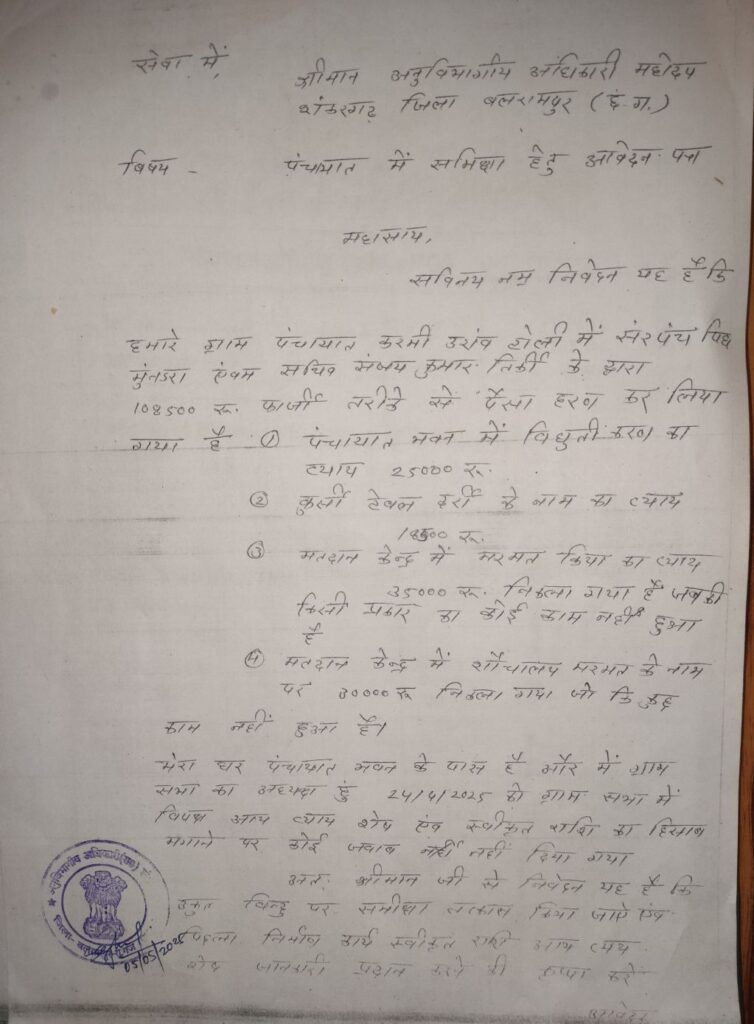 सेवा में,
श्रीमान अनुविभागीय अधिकारी महोदय
शंकरगढ़ जिला बलरामपुर (छ.ग.)
विषय - पंचायात में समिक्षा हेतु आवेदन पत्र
महासाय,
सविनय नम्र निवेदन यह है कि
हमारे ग्राम पंचायात करमी उरांव टोली में संरपंच
मुंनडरा एंवम सचिव संजय कुमार तिर्की के द्वारा
108500 रू. फार्जी तरीके सें पैसा हरण कर लिया
गया है ① पंचायात भवन में विधुती करण का
व्याय 25000 रू.
② कुर्सी टेवल दर्री के नाम का व्याय
18500 रू.
③ मतदान केन्द्र में मरमत किया का व्याय
35000 रू. निकला गया है जबकी
किसी प्रकार का कोई काम नहीं हुआ
है
④ मतदान केन्द्र में शौचालय मरमत के नाम
पर 30000 रू निकला गया जो कि कुछ
काम नहीं हुआ है।
मेरा घर पंचायात भवन के पास है और में ग्राम
सभा का अध्यक्ष हुं 24/4/2025 को ग्राम सभा में
आय व्याय शेष एंव स्वीकृत राशि का हिसाब
मगाने पर कोई जवाब नहीं दिया गया
अतः श्रीमान जी से निवेदन यह है कि
उकुत विन्दु पर समीक्षा तत्काल किया जाऐ एंव
पिछला निर्माण कार्य स्वीकृत राशि आय व्यय
शेष जानकारी प्रदान करने की कृप्पा करें
आवेदक
अनुविभागीय अधिकारी (रा०)
जिला-
05/05/2025